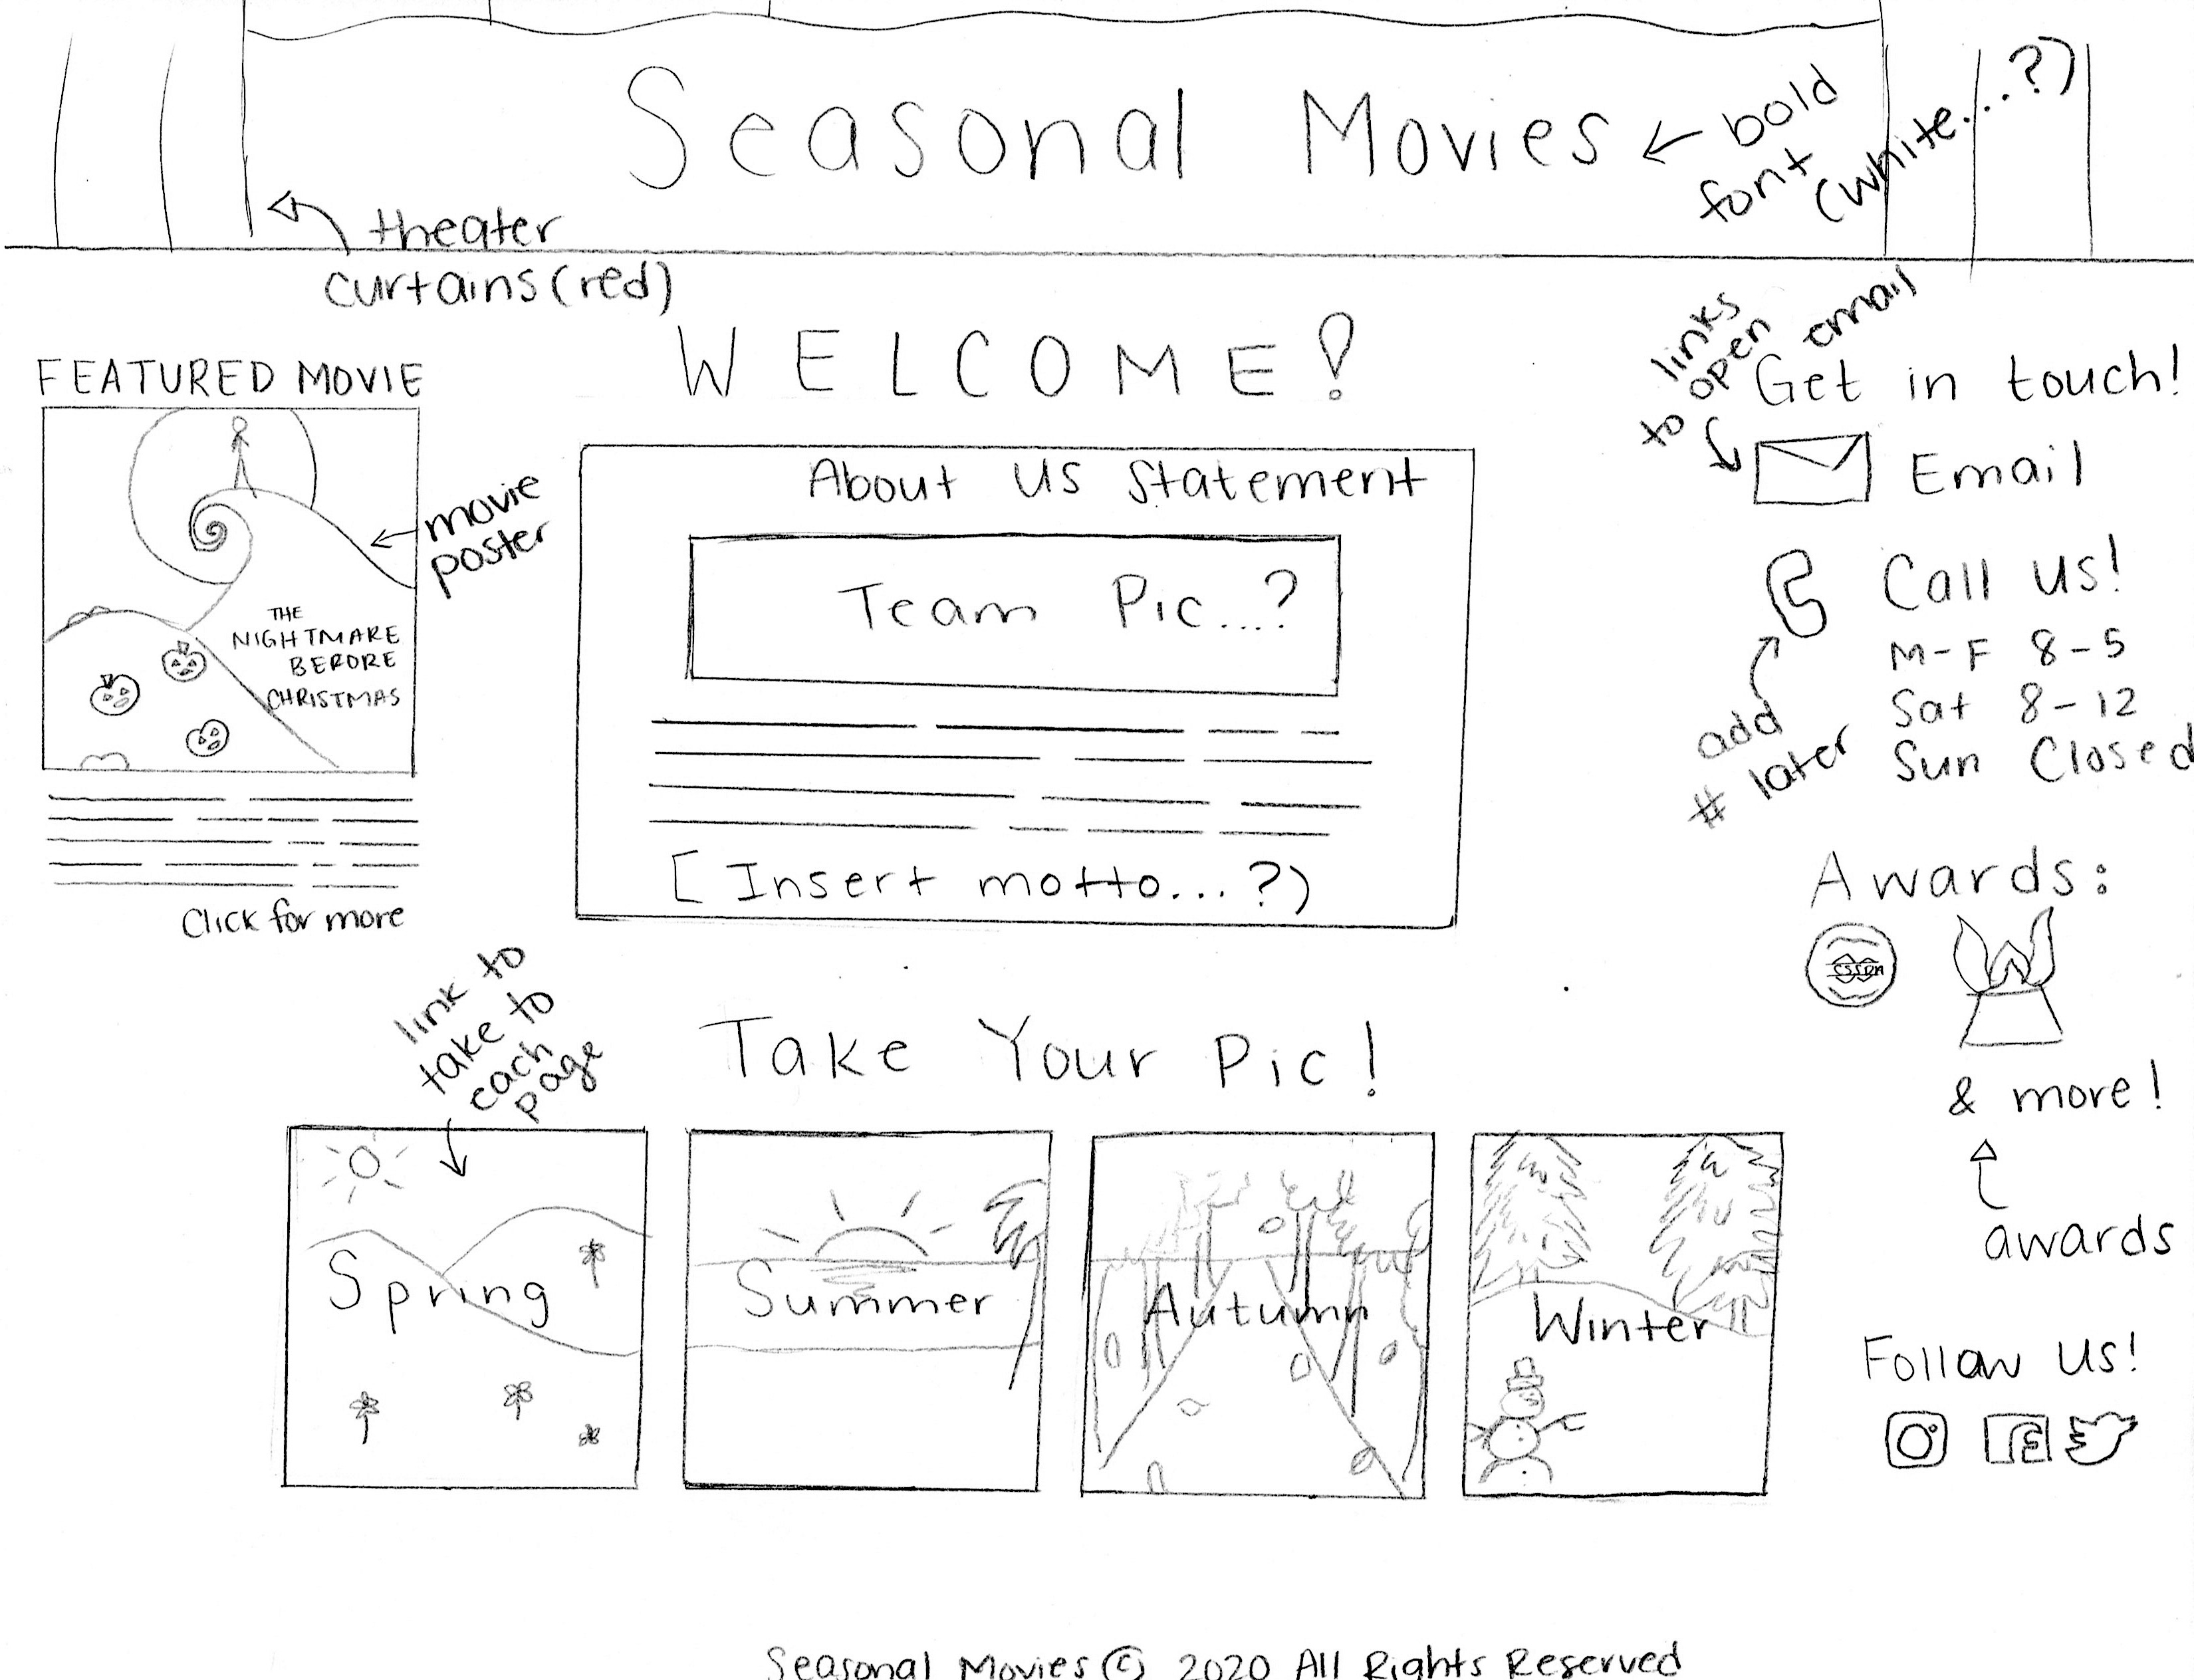 Seasonal Movies
bold
font
(white...?)
theater
curtains (red)
WELCOME!
FEATURED MOVIE
movie
poster
THE
NIGHTMARE
BERORE
CHRISTMAS
Click for more
About us Statement
Team Pic...?
[Insert motto...?)
links
to open
email
Get in touch!
Email
Call us!
M-F 8-5
Sat 8-12
Sun Closed
add
# later
Awards:
& more!
awards
link to
take to
each
page
Take Your Pic!
Spring
Summer
Autumn
Winter
Follow us!
Seasonal Movies © 2020 All Rights Reserved